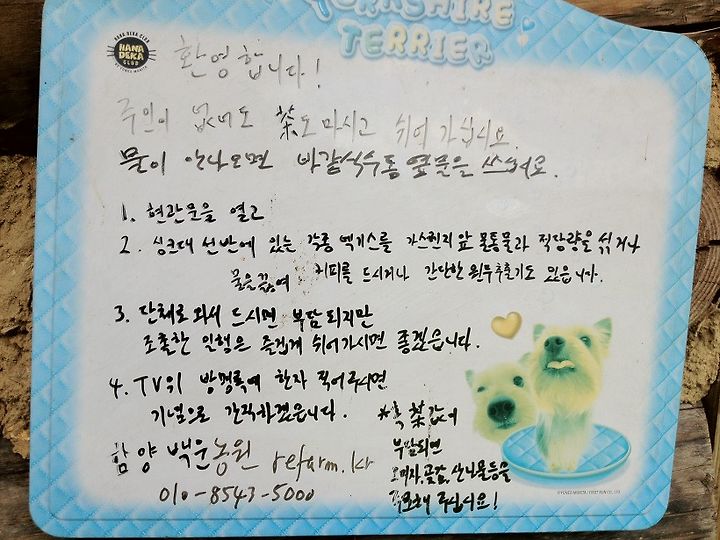 YORKSHIRE
TERRIER
HANA DEKA CLUB
HANA
DEKA
CLUB
환영합니다!
주인이 없어도 茶도 마시고 쉬어 가십시요.
물이 안나오면 바깥식수통 옆문을 쓰세요.
1. 현관문을 열고
2. 싱크대 선반에 있는 각종 엑기스를 가스렌지 앞 물통물과 적당량을 섞거나
물을 끓여 커피를 드시거나 간단한 원두추출기도 있읍니다.
3. 단체로 와서 드시면 부담되지만
조촐한 일행은 즐겁게 쉬어가시면 좋겠읍니다.
4. TV위 방명록에 한자 적어주시면
기념으로 간직하겠읍니다.
*혹 茶값이
부담되면
오미자,곶감,산나물등을
구요해 주십시요!
함양 백운농원 refarm.kr
010-8543-5000